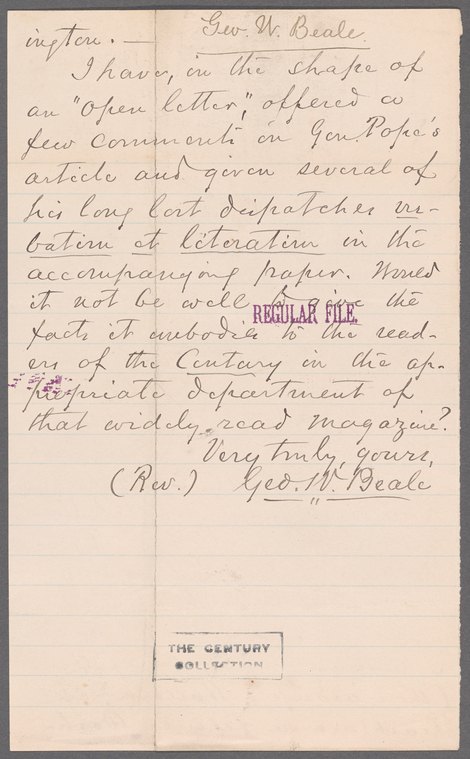 Geo. W. Beale.
ington. —
I have, in the shape of
an "open letter," offered a
few comments on Gen. Pope's
article and given several of
his long lost dispatches ver-
batim et literatim in the
accompanying paper. Would
it not be well to give the
REGULAR FILE.
facts it embodies to the read-
ers of the Century in the ap-
propriate department of
that widely read magazine?
Very truly yours,
(Rev.) Geo. W. Beale
THE CENTURY
COLLECTION